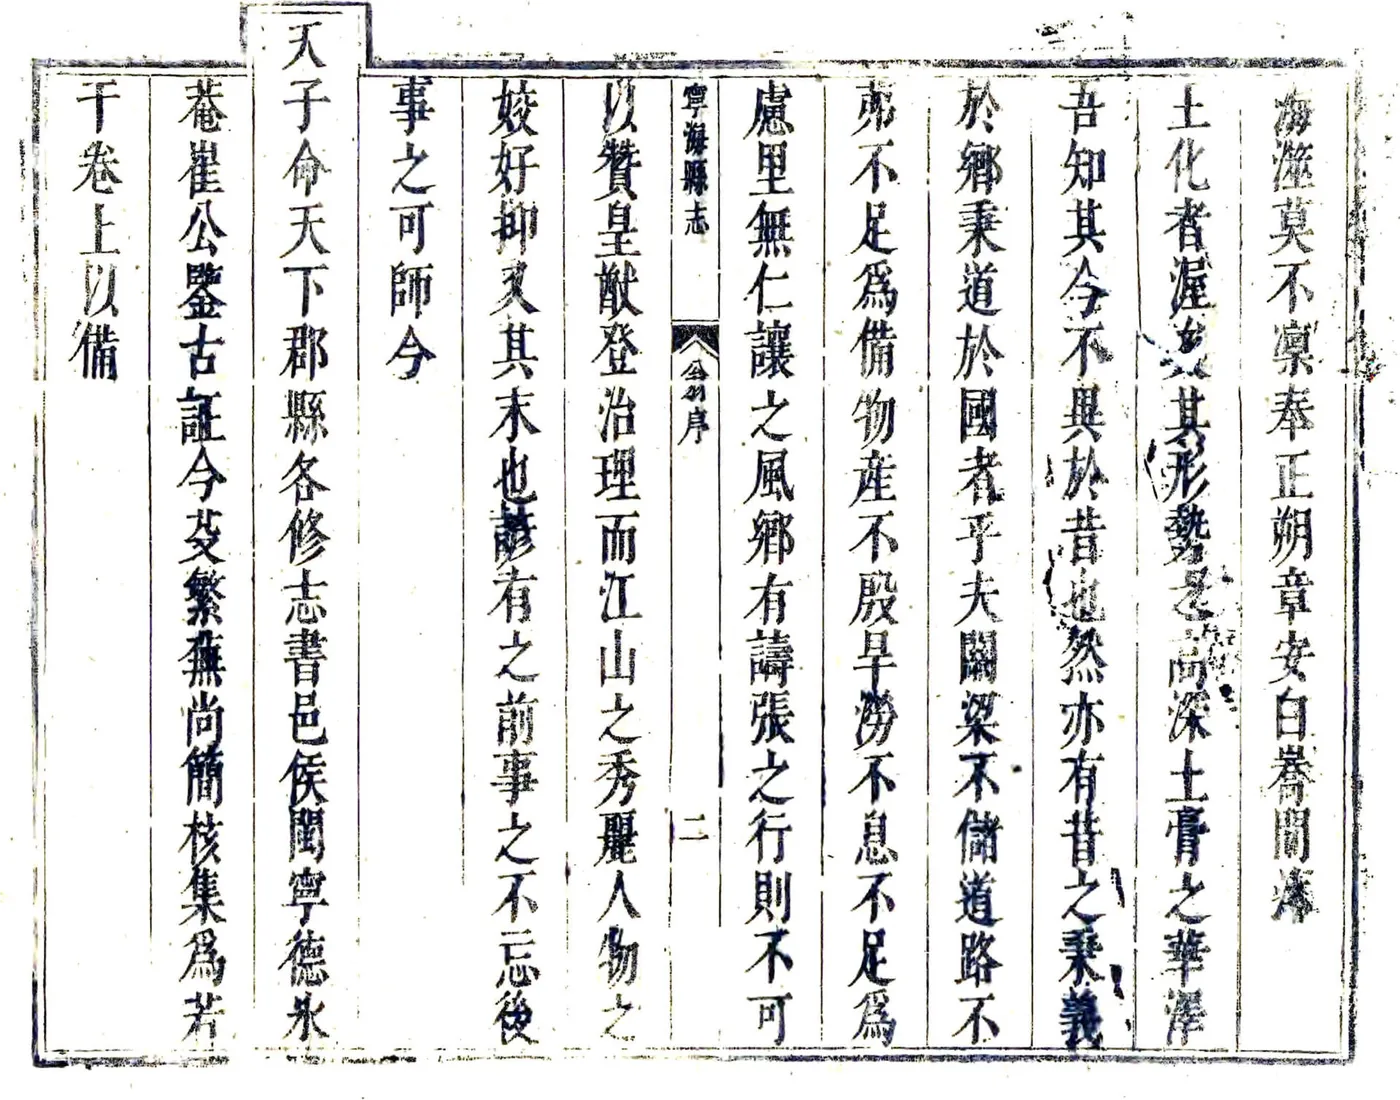 海澨莫不凜奉正朔章安白嶠間沐
土化者渥矣其形勢之高深土膏之華澤
吾知其今不異於昔也然亦有昔之秉義
於鄉秉道於國者乎夫關梁不儲道路不
茀不足爲備物産不殷旱澇不息不足爲
慮里無仁讓之風鄉有譸張之行則不可
寧海縣志 序 二
以贊皇猷登治理而江山之秀麗人物之
姣好抑又其末也諺有之前事之不忘後
事之可師今
天子命天下郡縣各修志書邑侯閩寧德氷
菴崔公鑒古証今芟繁蕪尚簡核集爲若
干卷上以備